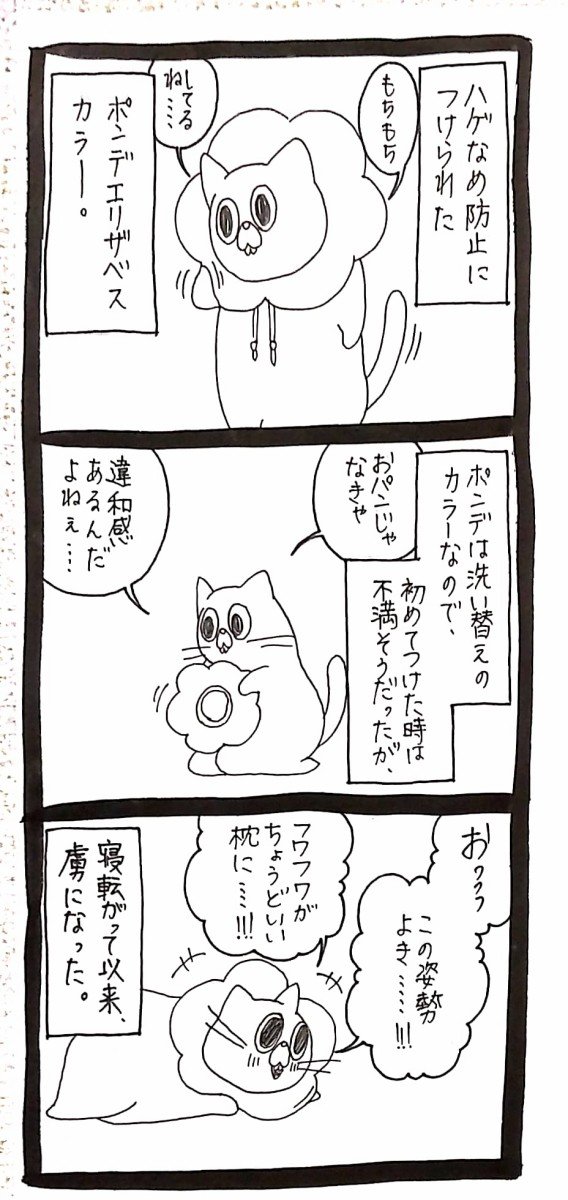 ハゲなめ防止に
つけられた
もちもち
してる
ね……
ポンデエリザベス
カラー。
ポンデは洗い替えの
カラーなので、
初めてつけた時は
不満そうだったが、
おパンじゃ
なきゃ
違和感
あるんだ
よねぇ……
おククク
この姿勢
よき……!!!
フワフワが
ちょうどいい
枕に……!!!
寝転がって以来、
虜になった。